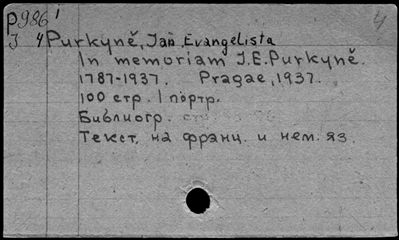 p986¹ 4
J 4 Purkyně, Jan Evangelista
In memoriam J.E. Purkyně.
1787-1937. Pragae, 1937.
100 стр. 1 портр.
Библиогр.
Текст. на франц. и нем. яз.